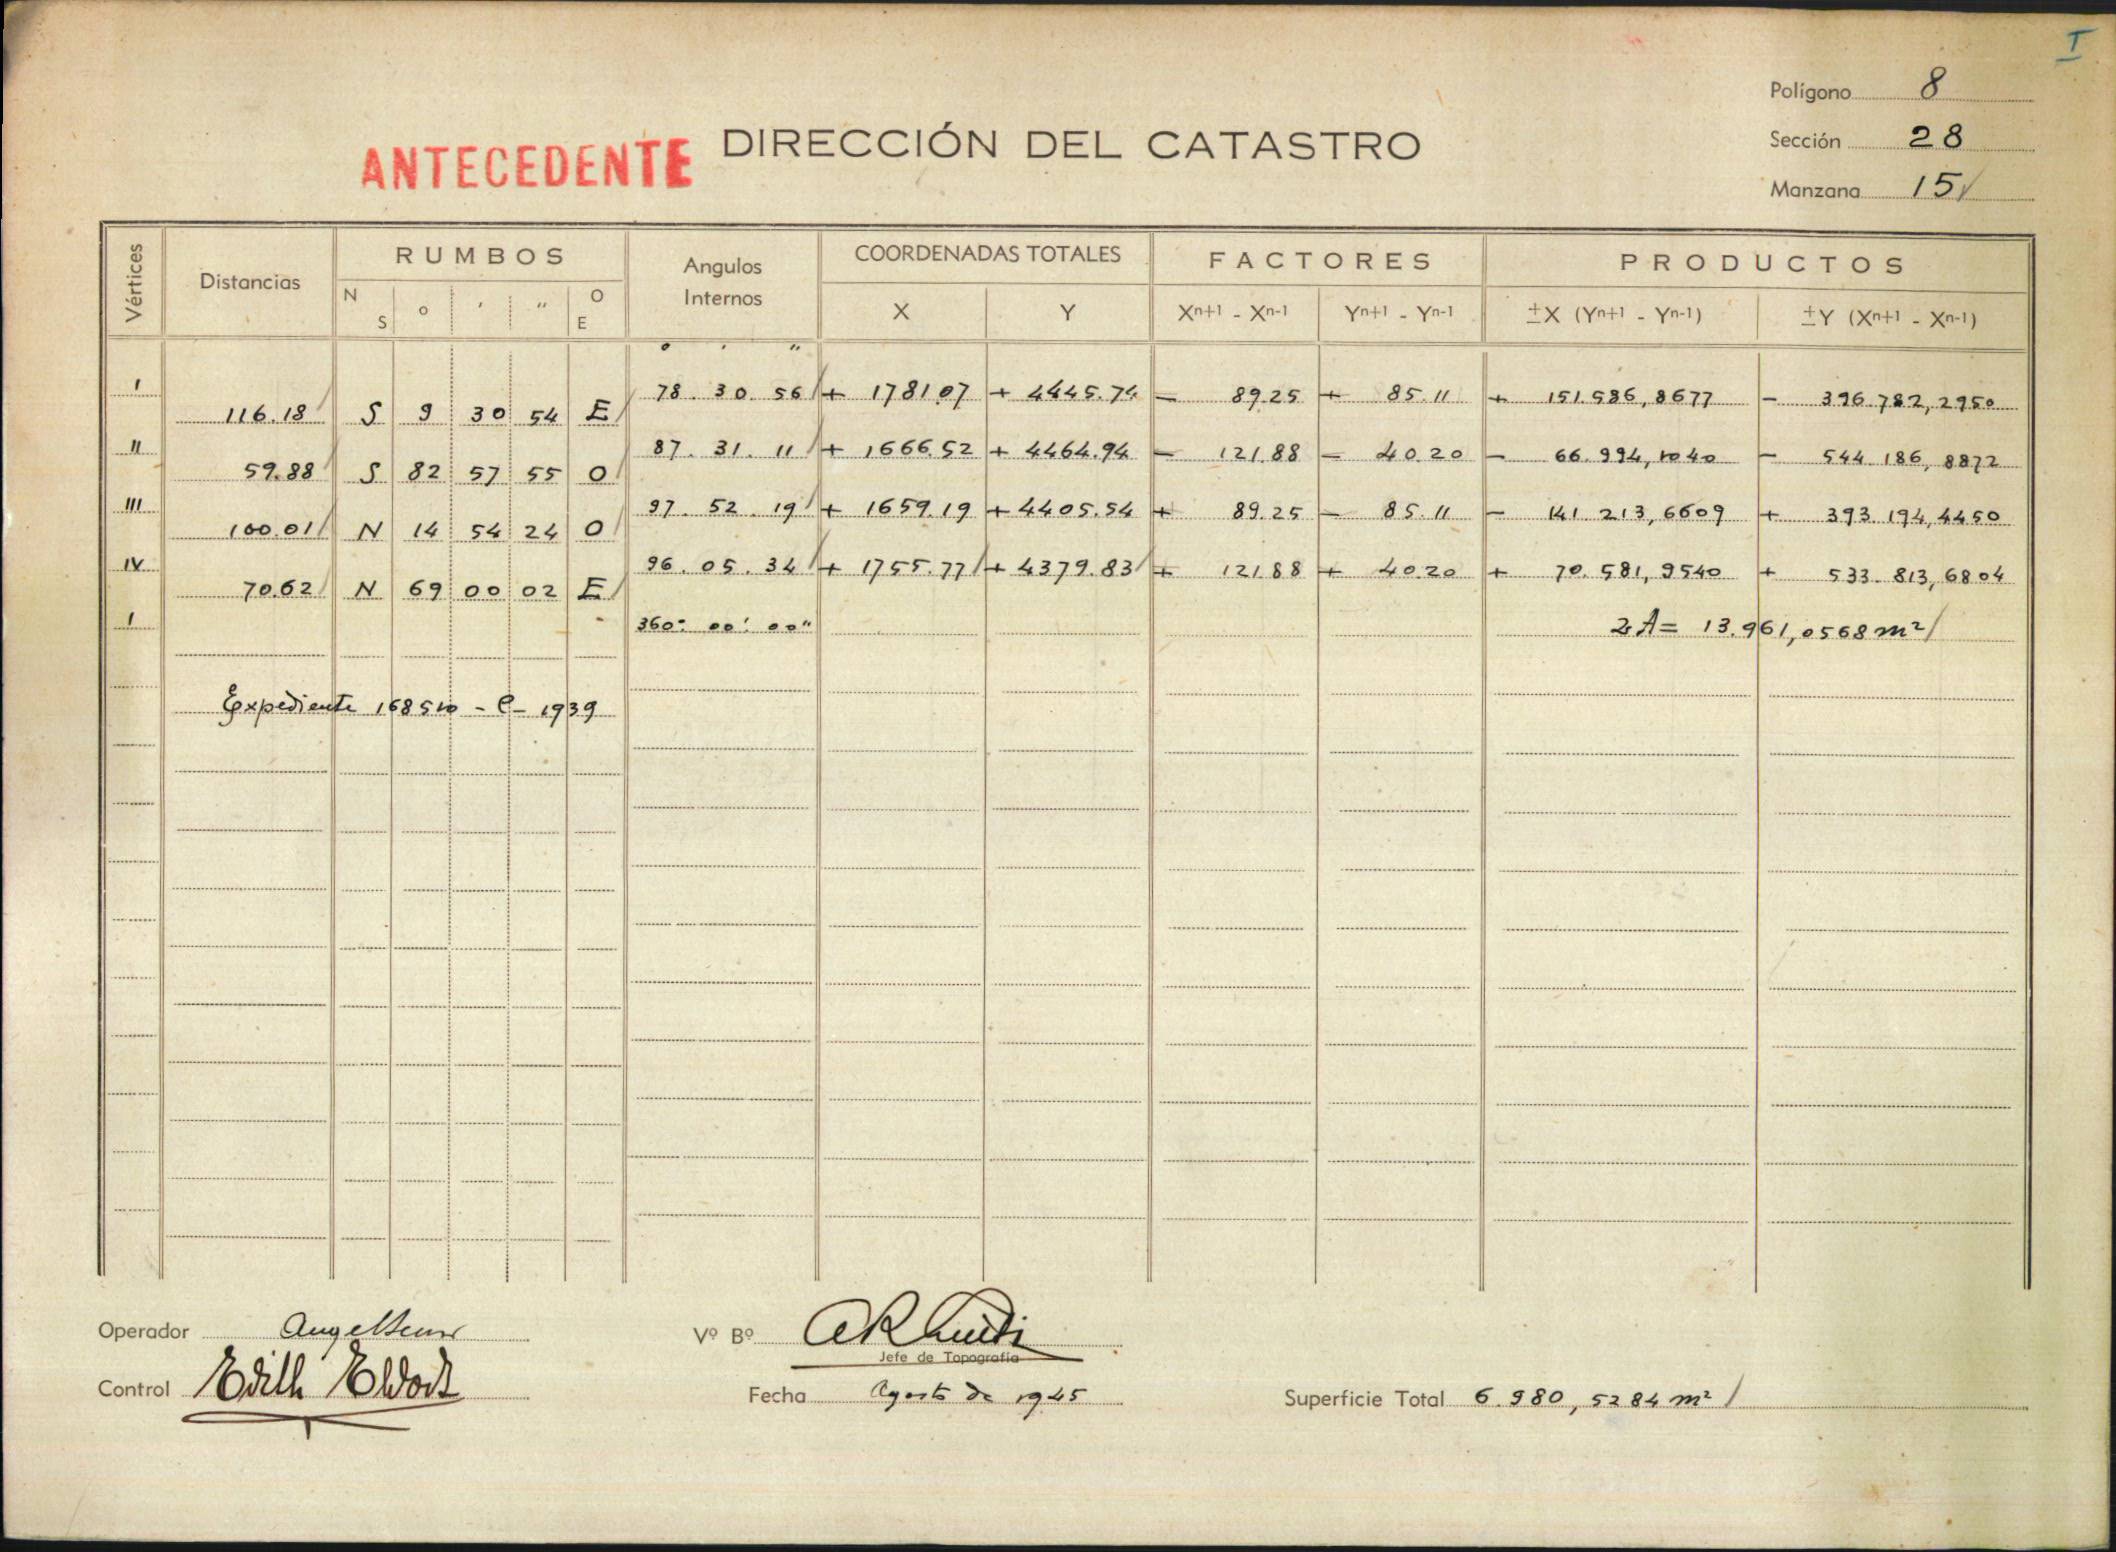 I
Polígono 8
ANTECEDENTE DIRECCIÓN DEL CATASTRO
Sección 28
Manzana 15
Vértices Distancias RUMBOS Angulos Internos COORDENADAS TOTALES FACTORES PRODUCTOS
N S ° ' " O E X Y Xn+1 - Xn-1 Yn+1 - Yn-1 ±X (Yn+1 - Yn-1) ±Y (Xn+1 - Xn-1)
° ' "
I 78. 30 56 + 1781.07 + 4445.74 - 89.25 + 85.11 + 151.586,8677 - 396.782,2950
116.18 S 9 30 54 E
II 87. 31. 11 + 1666.52 + 4464.94 - 121.88 - 40.20 - 66.994,1040 - 544.186,8872
59.88 S 82 57 55 O
III 97. 52. 19 + 1659.19 + 4405.54 + 89.25 - 85.11 - 141.213,6609 + 393.194,4450
100.01 N 14 54 24 O
IV 96. 05. 34 + 1755.77 + 4379.83 + 121.88 + 40.20 + 70.581,9540 + 533.813,6804
70.62 N 69 00 02 E
I 360° 00' 00" 2A= 13.961,0568 m²
Expediente 168510 - C - 1939
Operador
Vº Bº
Jefe de Topografía
Control Edith
Fecha Agosto de 1945
Superficie Total 6.980,5284 m²